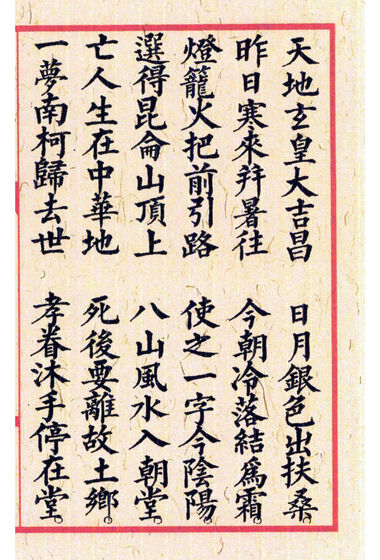 天地玄皇大吉昌　日月銀色出扶桑。
昨日寒來并暑往　今朝冷落結爲霜。
燈籠火把前引路　使之一字分陰陽。
選得昆侖山頂上　八山風水入朝堂。
亡人生在中華地　死後要離故土鄉。
一夢南柯歸去世　孝眷沐手停在堂。